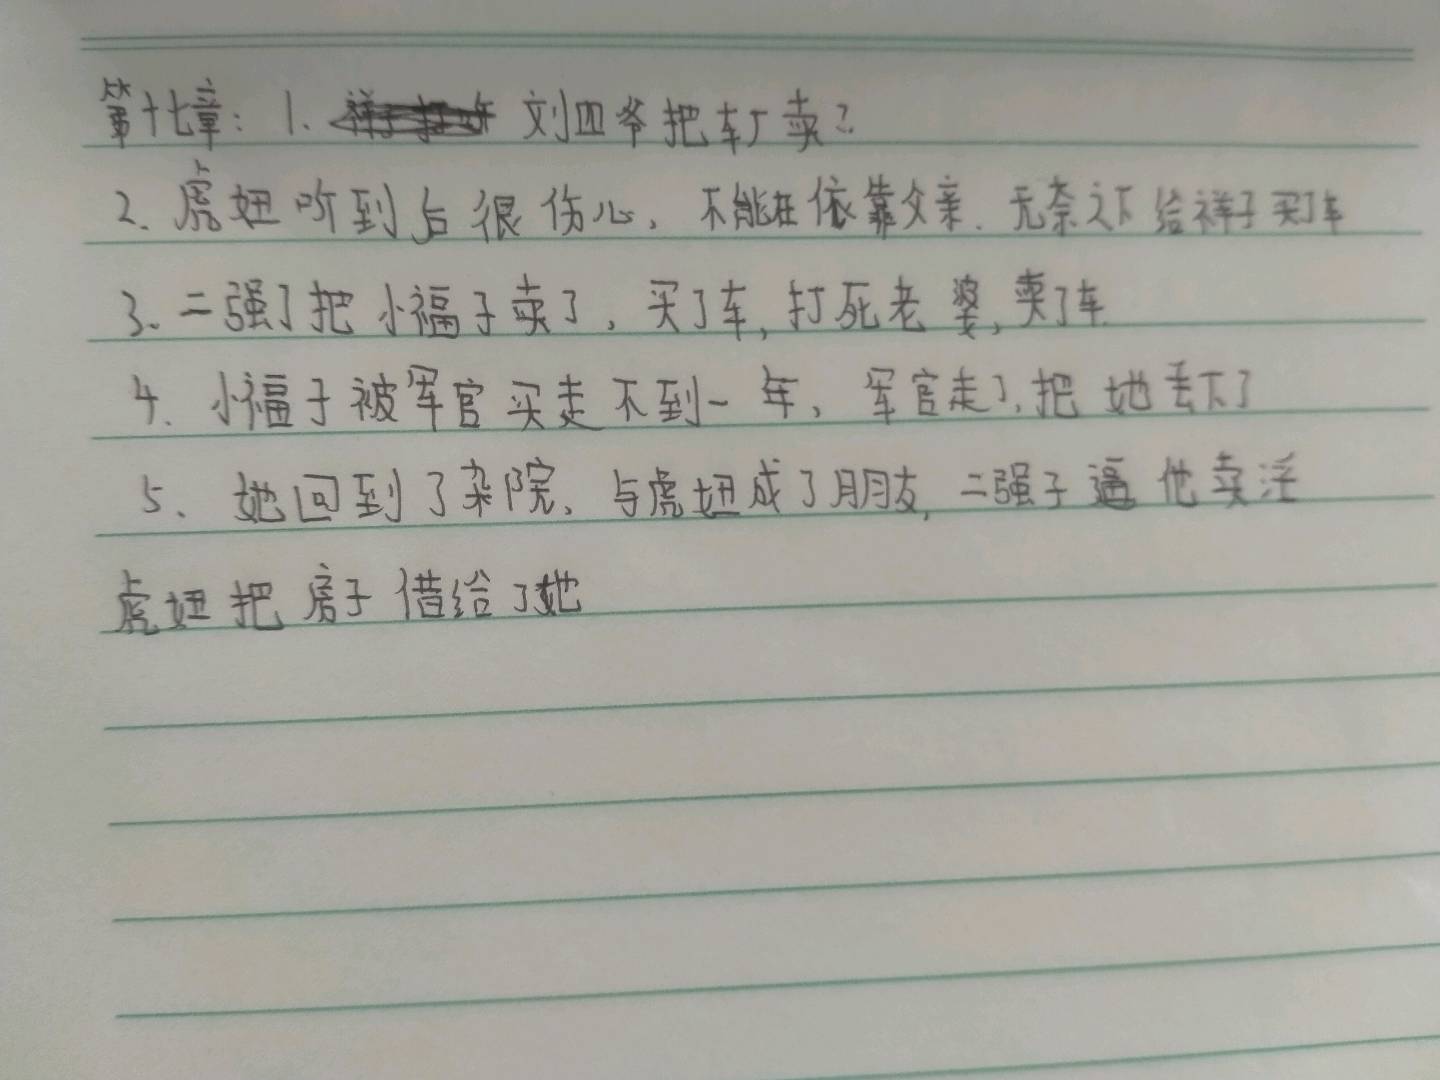 第十七章：1. 刘四爷把车厂卖了
2. 虎妞听到后很伤心，不能在依靠父亲．无奈之下给祥子买了车
3. 二强子把小福子卖了，买了车，打死老婆，卖了车．
4. 小福子被军官买走不到一年，军官走了，把她丢下了
5. 她回到了杂院，与虎妞成了朋友，二强子逼他卖淫
虎妞把房子借给了她